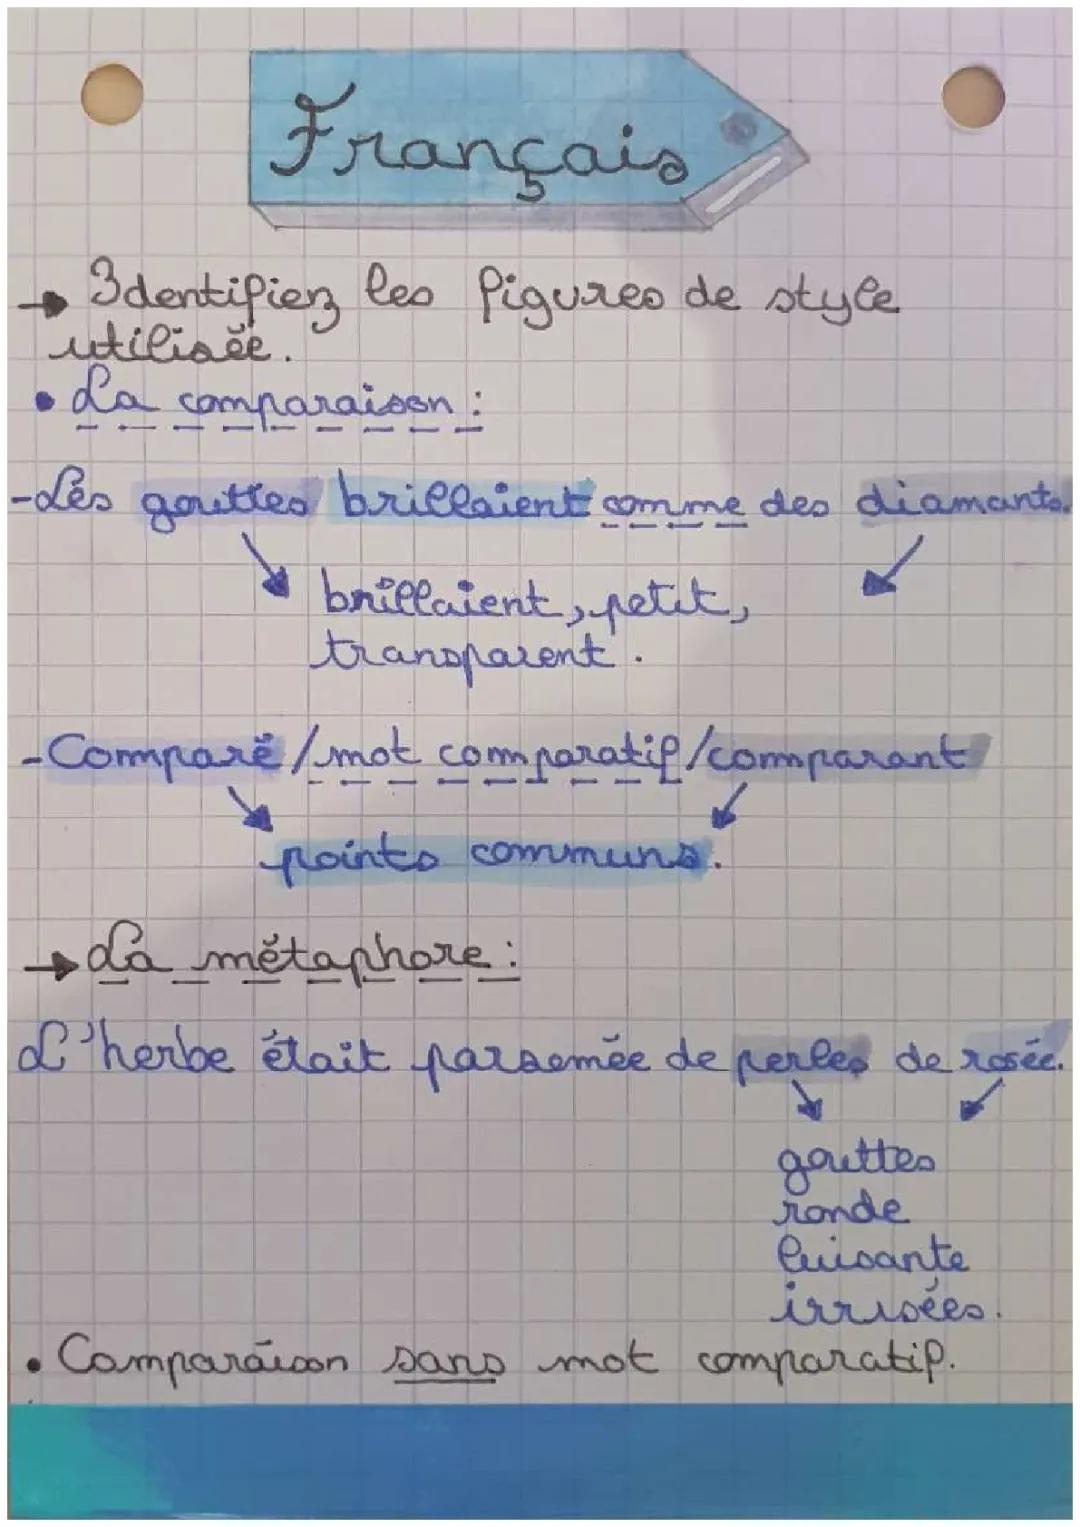 Français
→ Identifiez les figures de style
utilisée.
• La comparaison :
- Les gouttes brillaient comme des diamants.
brillaient, petit,
transparent.
- Comparé / mot comparatif / comparant
points communs.
→ La métaphore :
L'herbe était parsemée de perles de rosée.
gouttes
ronde
luisante
irrisées.
• Comparaison sans mot comparatif.